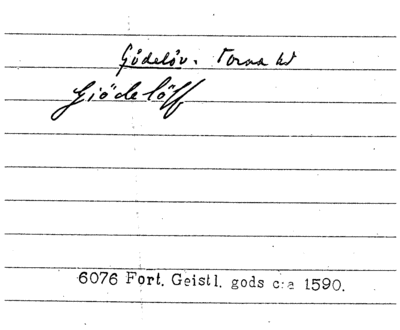 Gödelöv. Torna hd
Giödelöff
6076 Fort. Geistl. gods c:a 1590.